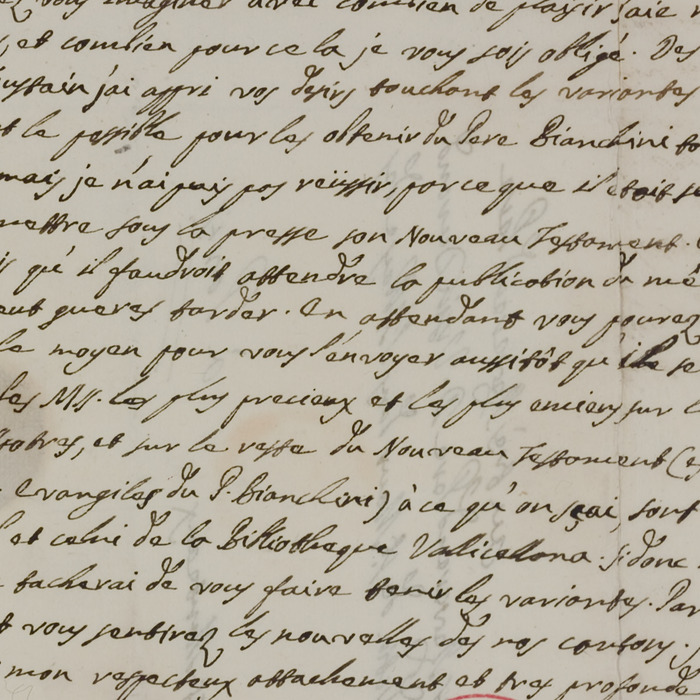 vous imaginer avec combien de plaisir j'aie
, et combien pour cela je vous sois obligé. Des
j'ai appri vos desirs touchant les variantes
le possible pour les obtenir du Pere Bianchini
mais je n'ai pas reüssir, parce que il etoit
mettre sous la presse son Nouveau Testament.
qu'il faudroit attendre la publication du mé
gueres tarder. En attendant vous pourez
le moyen pour vous l'envoyer aussitôt qu'il se
les MSS. les plus precieux et les plus enciens sur
, et sur le reste du Nouveau Testament (
Evangiles du P. Bianchini) à ce qu'on sçai, sont
et celui de la Biblioteque Vallicellana. Si donc
tacherai de vous faire tenir les variantes. Par
vous sentirez les nouvelles des nos contons.
mon respecteux attachement et tres profond